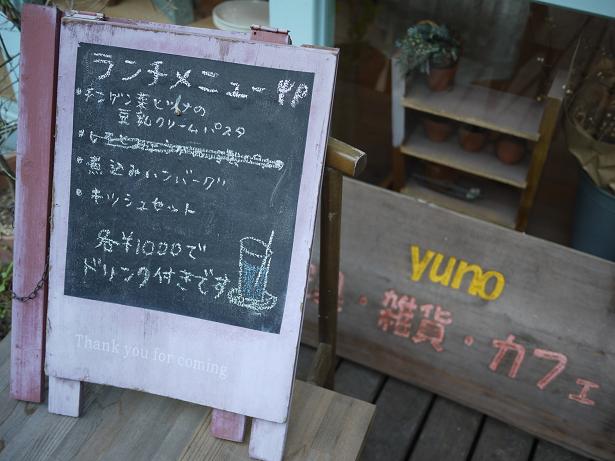 ランチメニュー
・チンゲン菜とツナの
豆乳クリームパスタ
・煮込みハンバーグ
・キッシュセット
各¥1000で
ドリンク付きです
Thank you for coming
yuno
・雑貨・カフェ